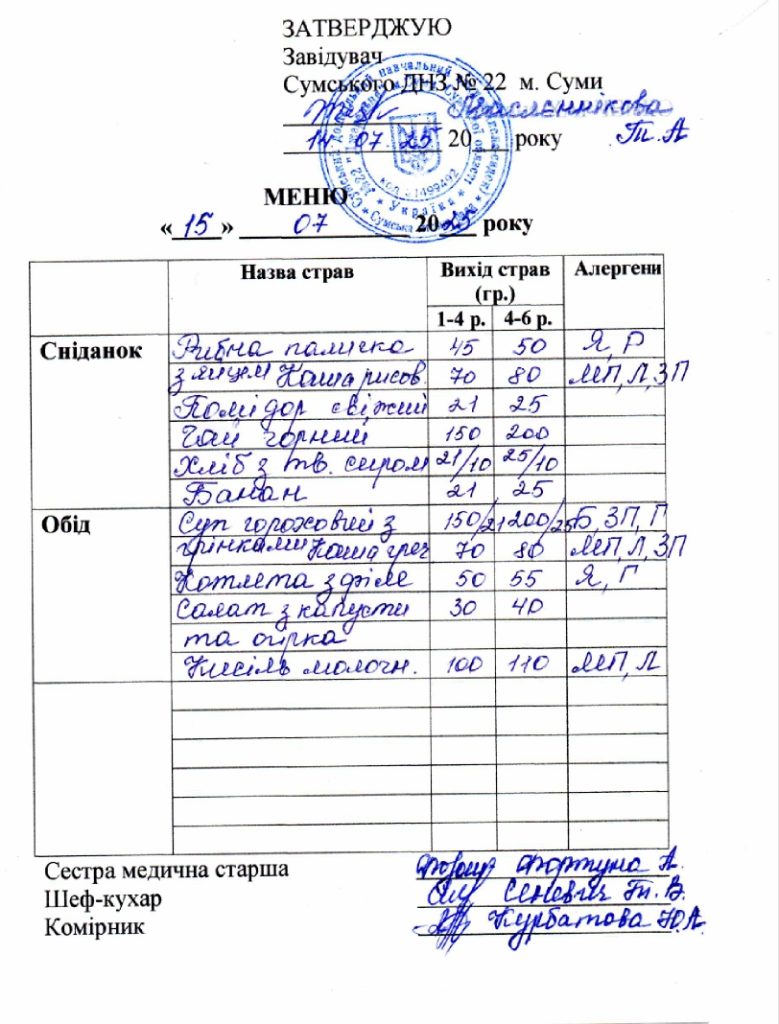 ЗАТВЕРДЖУЮ
Завідувач
Сумського ДНЗ № 22 м. Суми
Масленнікова
14 07. 25 20___ року Т. А
МЕНЮ
«15» 07 2025 року
Назва страв Вихід страв (гр.) Алергени
1-4 р. 4-6 р.
Сніданок Рибна паличка 45 50 Я, Г
з яйцем Каша рисов. 70 80 МП, Л, ЗП
Помідор свіжий 21 25
Чай чорний 150 200
Хліб з тв. сиром 21/10 25/10
Банан 21 25
Обід Суп гороховий з 150/21 200/25 Б, ЗП, Г
грінками Каша греч 70 80 МП, Л, ЗП
Котлета з філе 50 55 Я, Г
Салат з капусти 30 40
та огірка
Кисіль молочн. 100 110 МП, Л
Сестра медична старша Фортуна А.
Шеф-кухар Сеневич Т. В.
Комірник Курбатова Ю.А